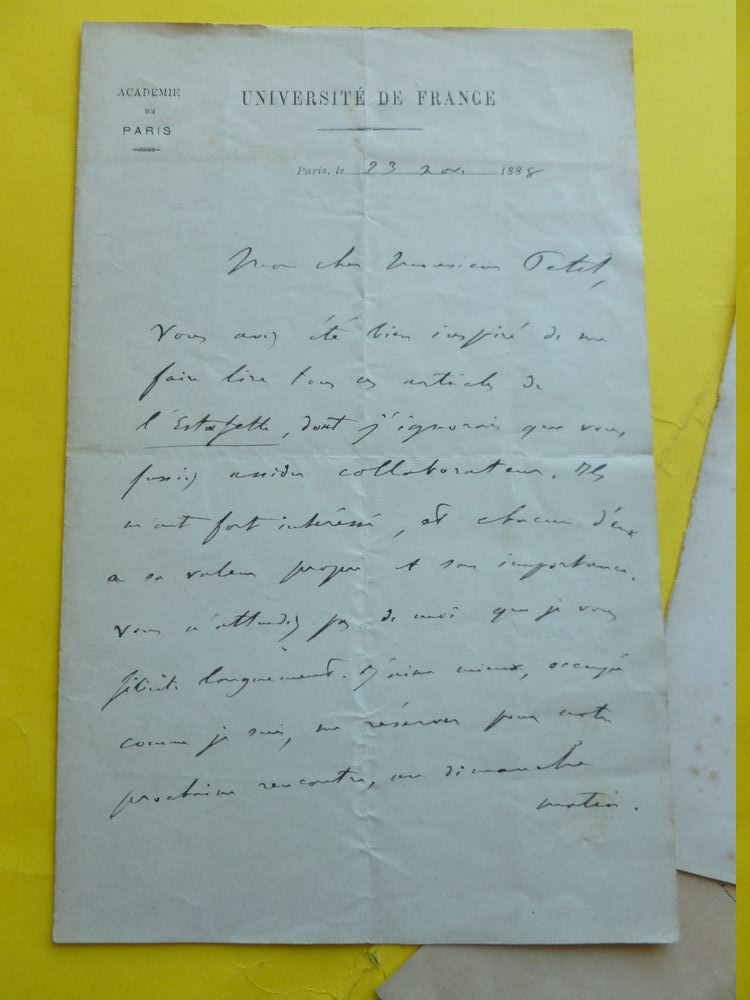 ACADÉMIE
DE
PARIS
UNIVERSITÉ DE FRANCE
Paris, le 23 nov. 1888
Mon cher Monsieur Patel,
Vous avez été bien inspiré de me
faire lire tous ces articles de
l'Estafette, dont j'ignorais que vous
fussiez assidu collaborateur. Ils
m'ont fort intéressé, et chacun d'eux
a sa valeur propre et son importance.
Vous n'attendez pas de moi que je vous
félicite longuement. J'aime mieux, occupé
comme je suis, me réserver pour notre
prochaine rencontre, un dimanche
matin.